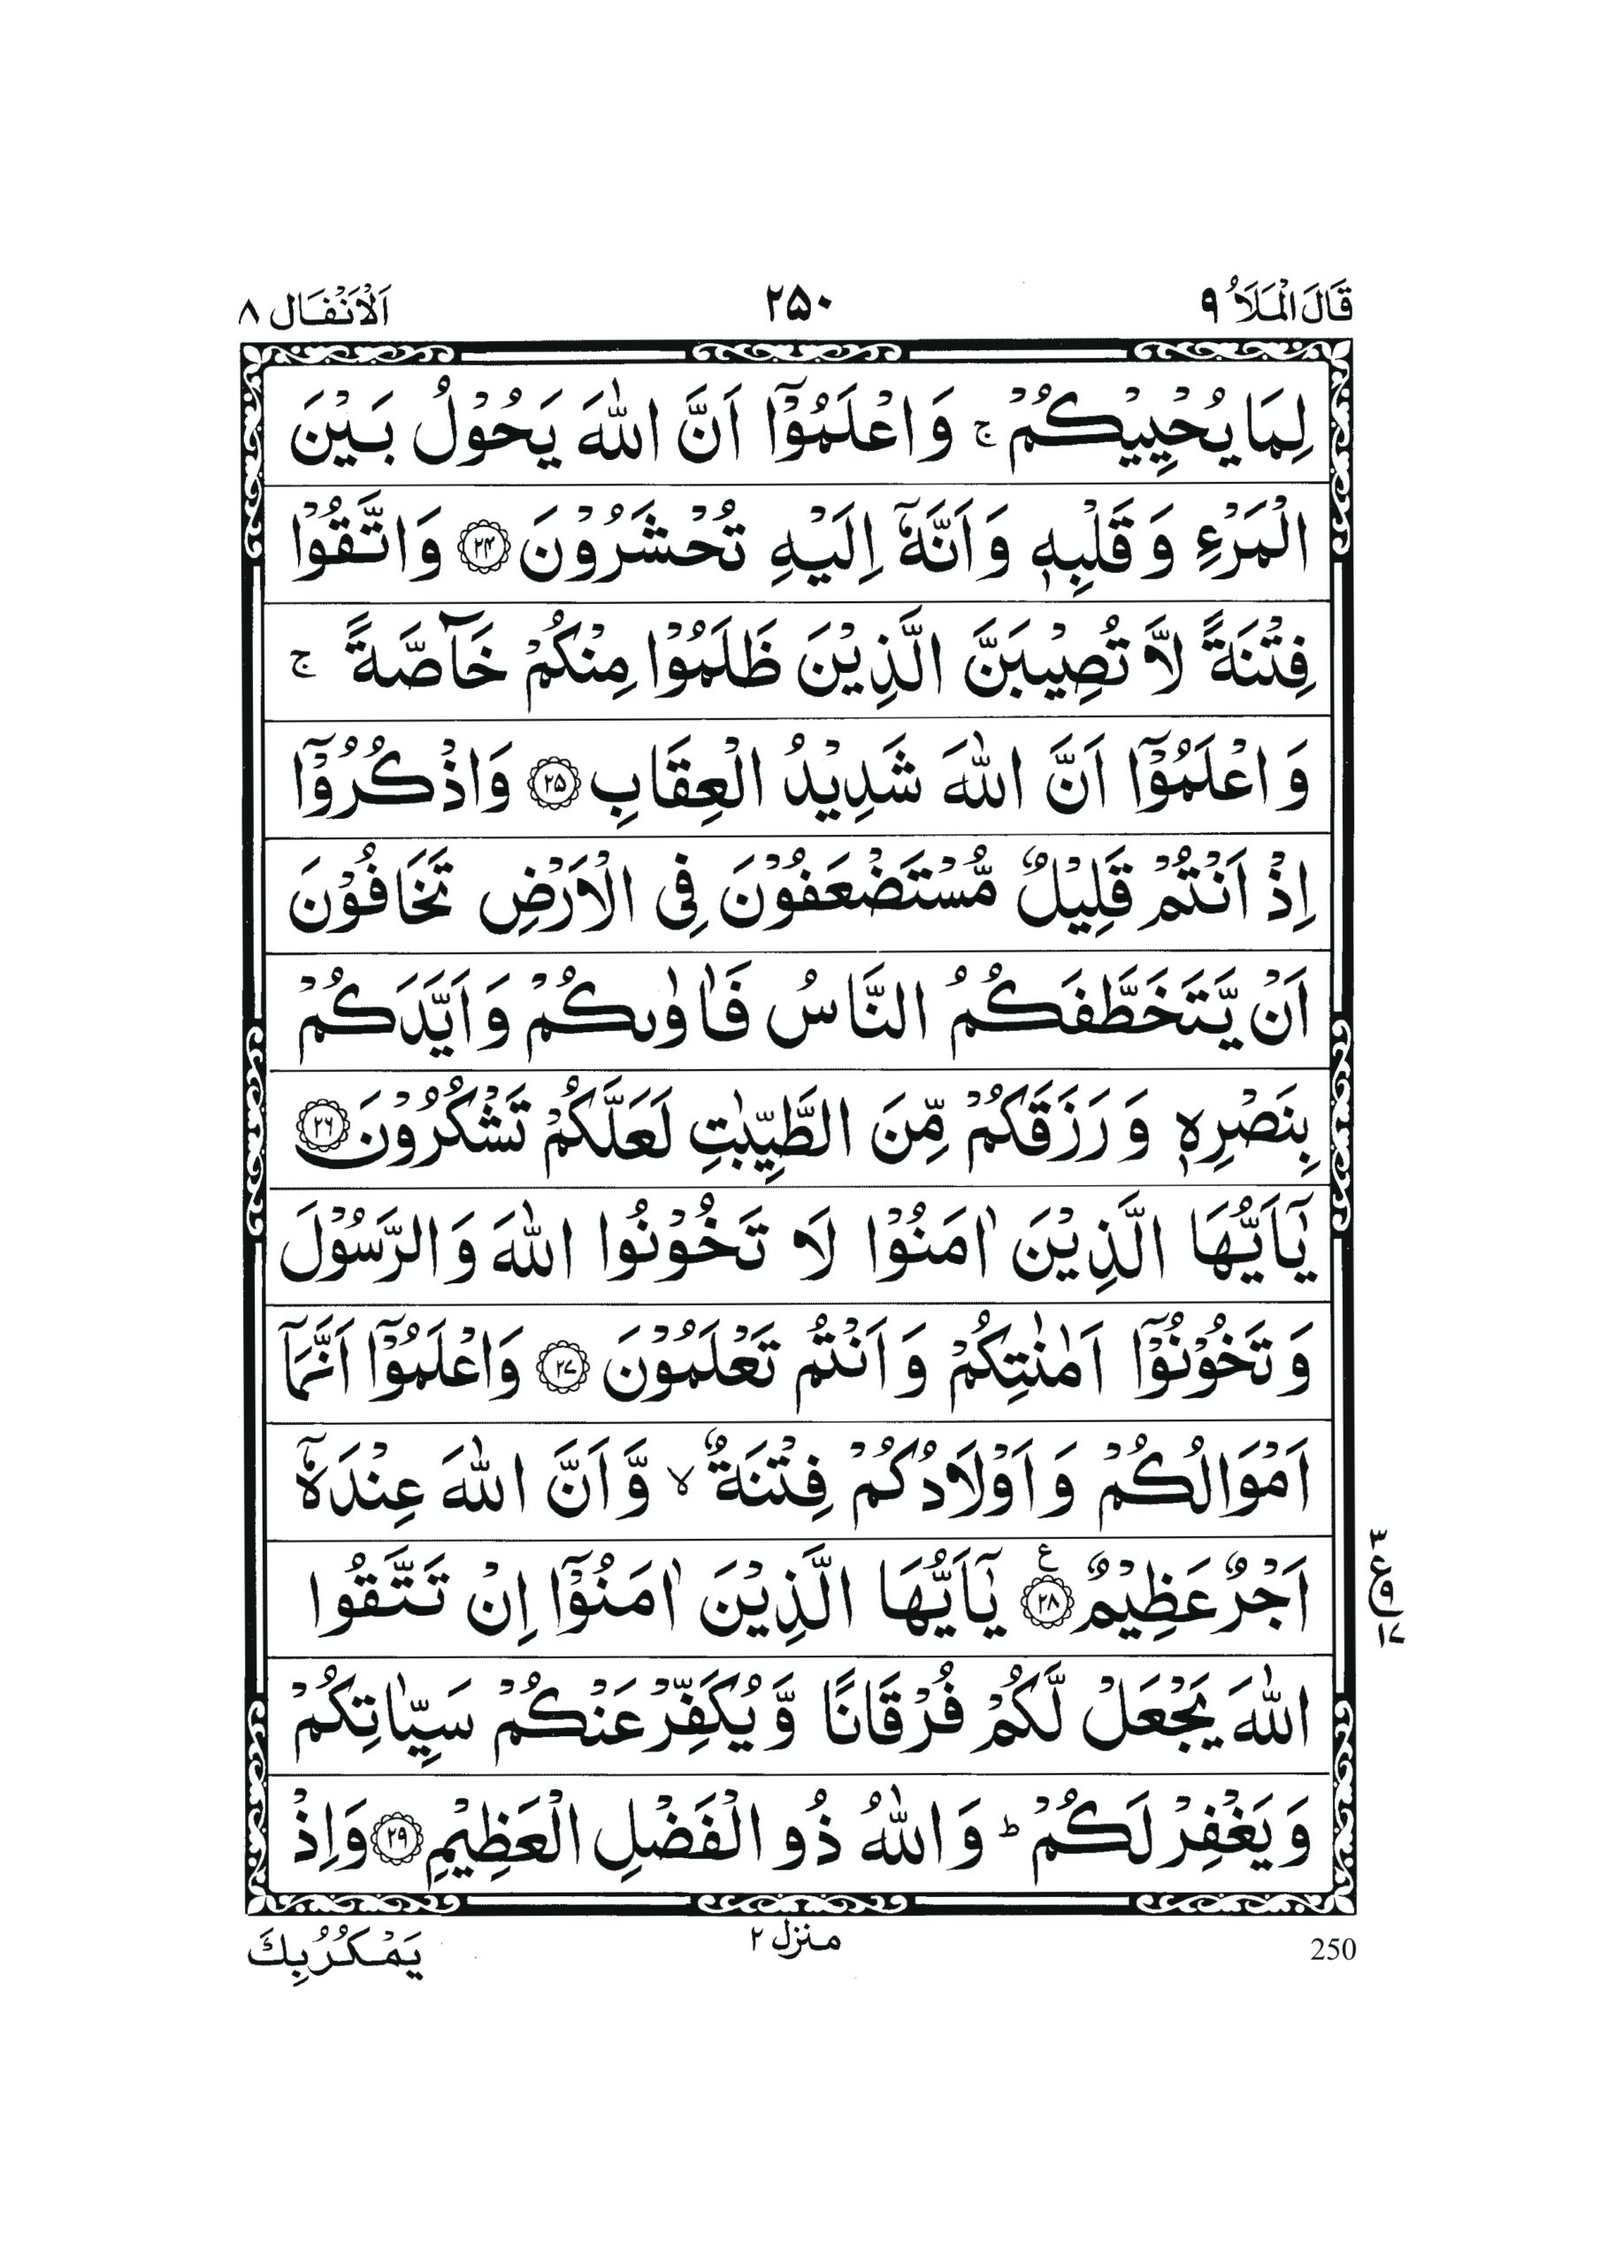 قَالَ الْمَلَاُ ٩
٢٥٠
اَلْاَنْفَال ٨
لِمَا يُحْيِيْكُمْ ۚ وَاعْلَمُوْۤا اَنَّ اللّٰهَ يَحُوْلُ بَيْنَ
الْمَرْءِ وَقَلْبِهٖ وَاَنَّهٗۤ اِلَيْهِ تُحْشَرُوْنَ ﴿٢٤﴾ وَاتَّقُوْا
فِتْنَةً لَّا تُصِيْبَنَّ الَّذِيْنَ ظَلَمُوْا مِنْكُمْ خَآصَّةً ۚ
وَاعْلَمُوْۤا اَنَّ اللّٰهَ شَدِيْدُ الْعِقَابِ ﴿٢٥﴾ وَاذْكُرُوْۤا
اِذْ اَنْتُمْ قَلِيْلٌ مُّسْتَضْعَفُوْنَ فِى الْاَرْضِ تَخَافُوْنَ
اَنْ يَّتَخَطَّفَكُمُ النَّاسُ فَاٰوٰىكُمْ وَاَيَّدَكُمْ
بِنَصْرِهٖ وَرَزَقَكُمْ مِّنَ الطَّيِّبٰتِ لَعَلَّكُمْ تَشْكُرُوْنَ ﴿٢٦﴾
يٰۤاَيُّهَا الَّذِيْنَ اٰمَنُوْا لَا تَخُوْنُوا اللّٰهَ وَالرَّسُوْلَ
وَتَخُوْنُوْۤا اَمٰنٰتِكُمْ وَاَنْتُمْ تَعْلَمُوْنَ ﴿٢٧﴾ وَاعْلَمُوْۤا اَنَّمَاۤ
اَمْوَالُكُمْ وَاَوْلَادُكُمْ فِتْنَةٌ ۙ وَّاَنَّ اللّٰهَ عِنْدَهٗۤ
اَجْرٌ عَظِيْمٌ ﴿٢٨﴾ ع يٰۤاَيُّهَا الَّذِيْنَ اٰمَنُوْۤا اِنْ تَتَّقُوا
اللّٰهَ يَجْعَلْ لَّكُمْ فُرْقَانًا وَّيُكَفِّرْ عَنْكُمْ سَيِّاٰتِكُمْ
وَيَغْفِرْ لَكُمْ ؕ وَاللّٰهُ ذُو الْفَضْلِ الْعَظِيْمِ ﴿٢٩﴾ وَاِذْ
يَمْكُرُ بِكَ
منزل ٢
250